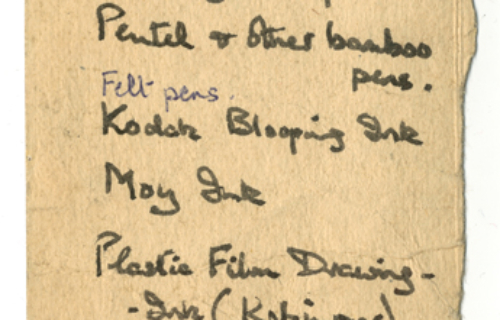 Pentel & other bamboo
pens.
Felt pens.
Kodak Blooping Ink
Moy Ink
Plastic Film Drawing-
-Ink (